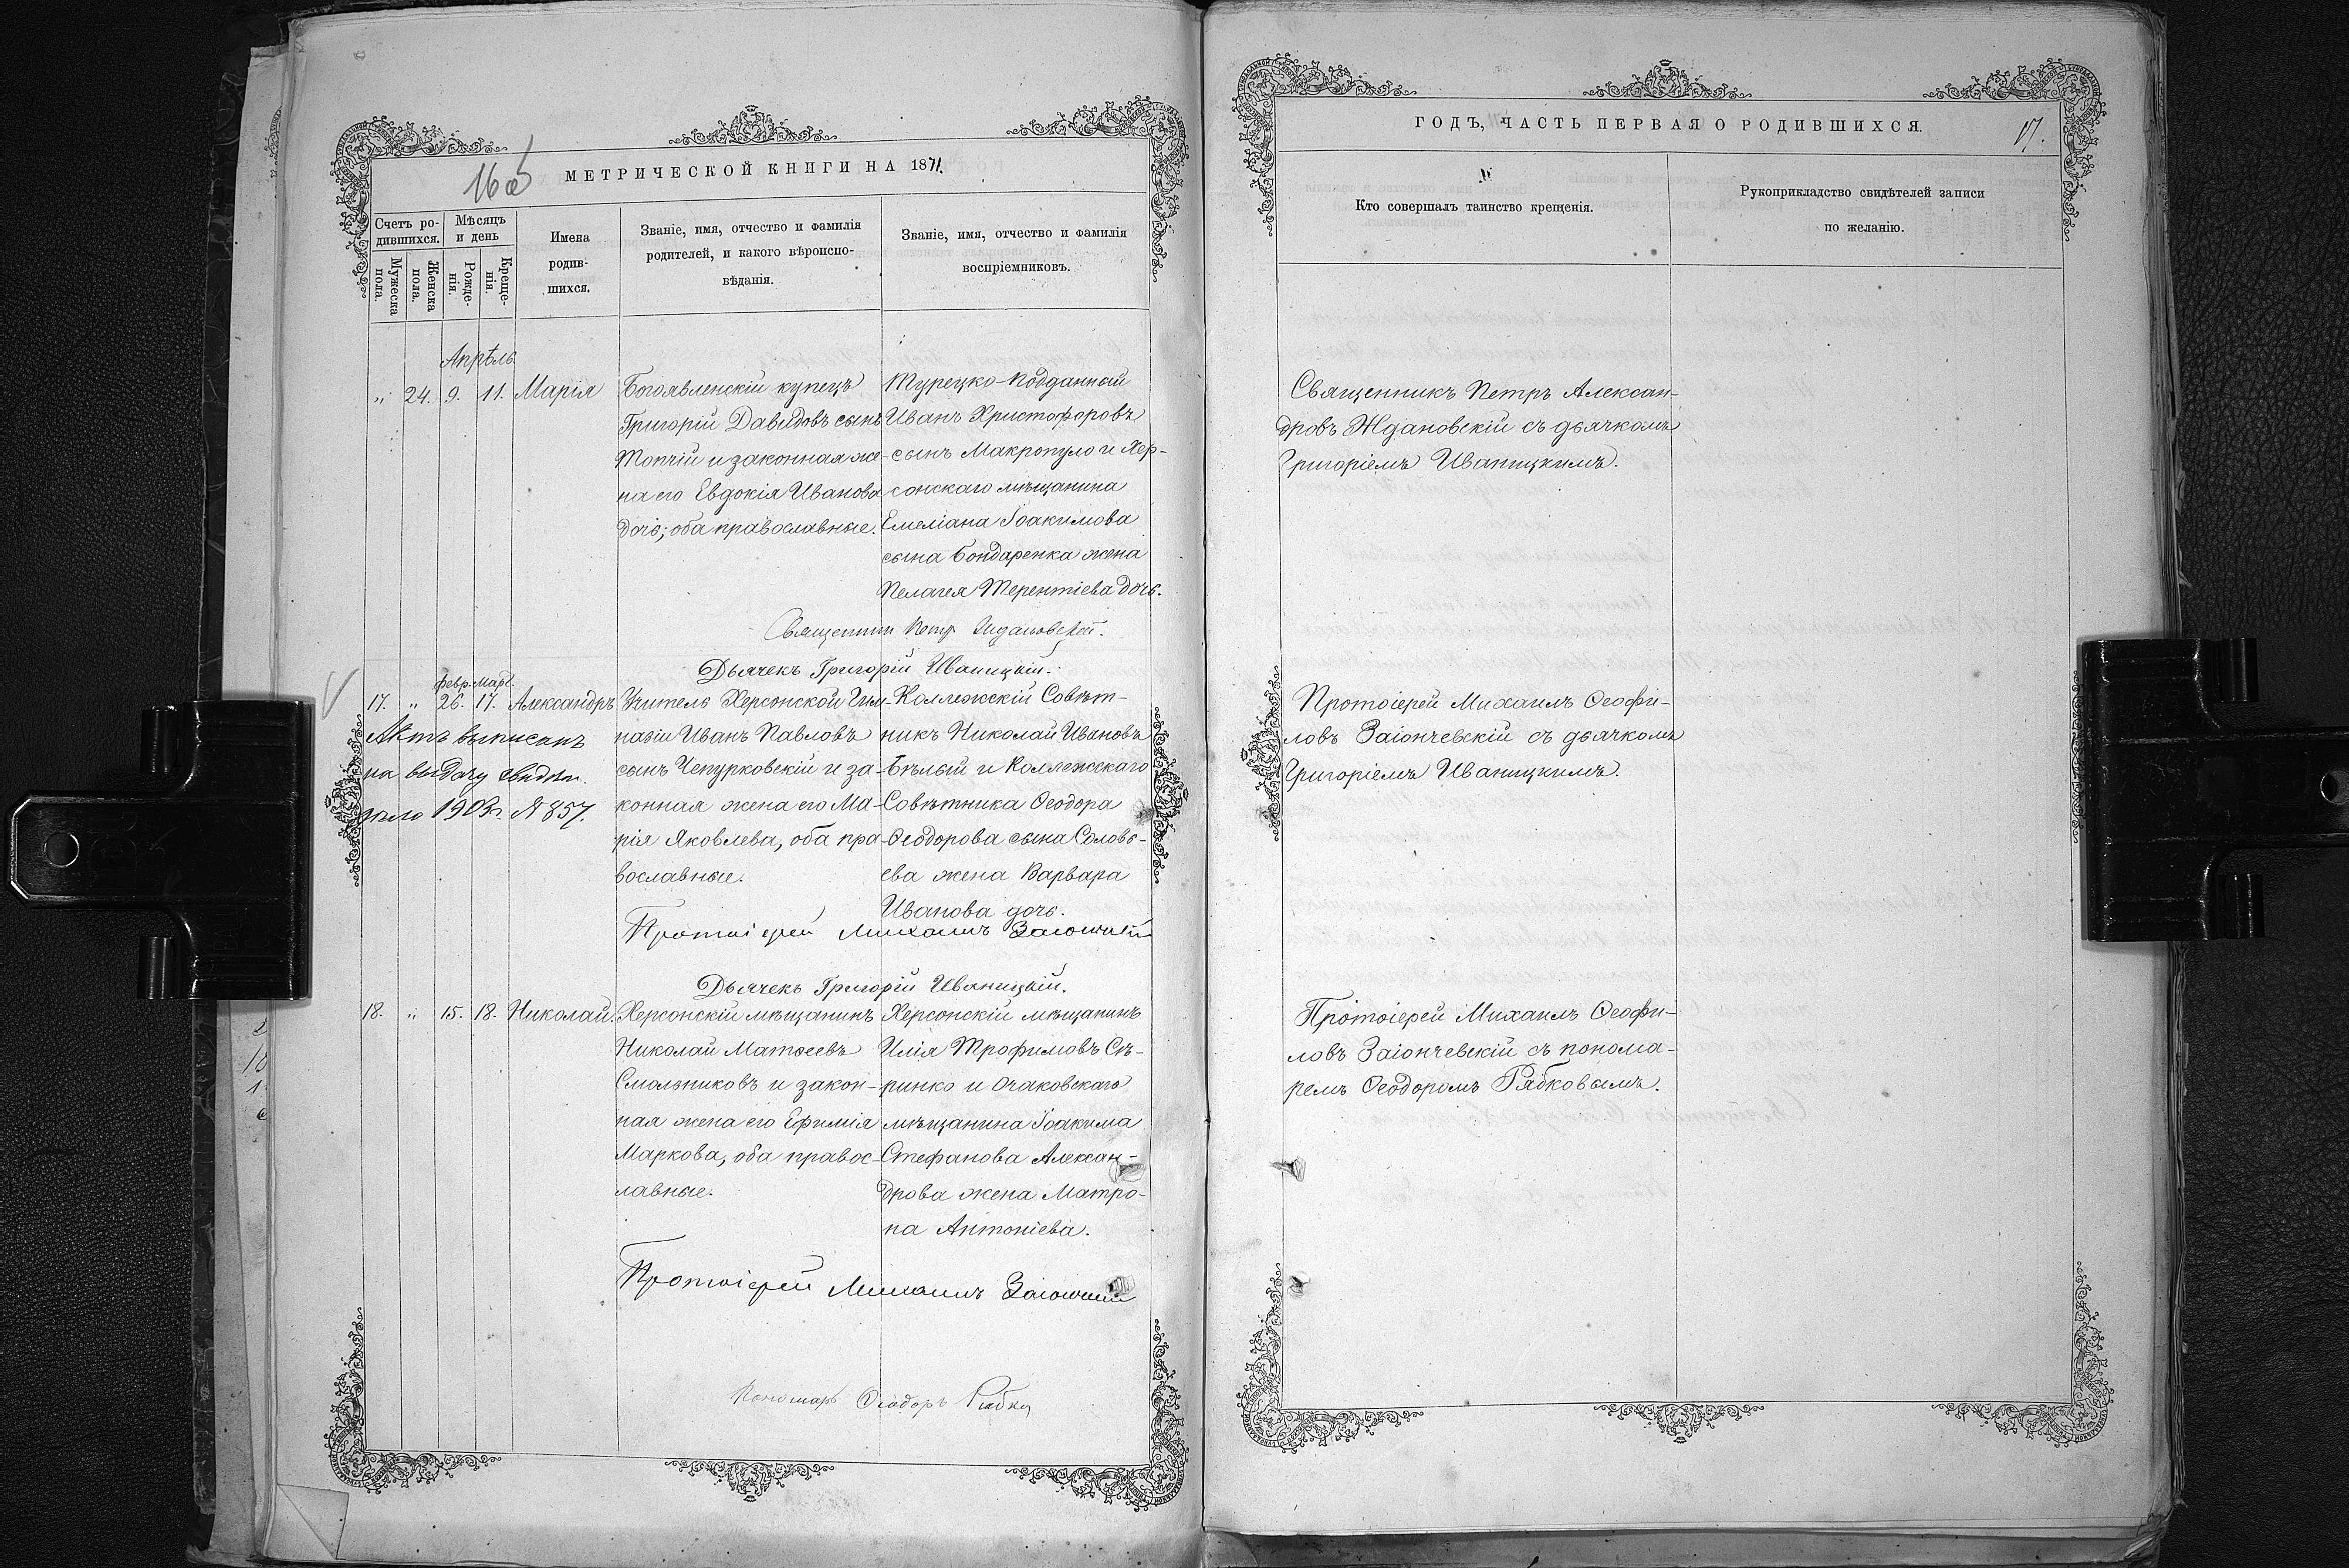 16 об
МЕТРИЧЕСКОЙ КНИГИ НА 1871.
Счетъ ро-
дившихся.
Мужеска пола.
Женска пола.
Мѣсяцъ
и день
Рожде-
нія.
Креще-
нія.
Имена
родив-
шихся.
Званіе, имя, отчество и фамилія
родителей, и какого вѣроиспо-
вѣданія.
Званіе, имя, отчество и фамилія
воспріемниковъ.
Апрѣль
„ 24. 9. 11. Марія
Богоявленскій купецъ
Григорій Давидовъ сынъ
Топчій и законная же-
на его Евдокія Иванова
дочь; оба православные.
Турецко-подданный
Иванъ Христофоровъ
сынъ Макропуло и Хер-
сонскаго мѣщанина
Емеліана Іоакимова
сына Бондаренка жена
Пелагея Терентіева дочь.
Священникъ Петръ Ждановскій.
Дьячекъ Григорій Иваницкій.
февр. Март.
17. „ 26. 17. Александръ
Актъ выписанъ
на выдачу свидѣт.
1903 г. № 857.
Учитель Херсонской Гим-
назіи Иванъ Павловъ
сынъ Чепурковскій и за-
конная жена его Ма-
рія Яковлева, оба пра-
вославные.
Коллежскій Совѣт-
никъ Николай Ивановъ
Бѣлый и Коллежскаго
Совѣтника Ѳеодора
Ѳеодорова сына Соловь-
ева жена Варвара
Иванова дочь.
Протоіерей Михаилъ Заіончевскій
Дьячекъ Григорій Иваницкій.
18. „ 15. 18. Николай.
Херсонскій мѣщанинъ
Николай Матѳеевъ
Смольниковъ и закон-
ная жена его Ефимія
Маркова, оба правос-
лавные.
Херсонскій мѣщанинъ
Илія Трофимовъ Ск-
ринко и Очаковскаго
мѣщанина Іоакима
Стефанова Алексан-
дрова жена Матро-
на Антоніева.
Протоіерей Михаилъ Заіончевскій
Пономарь Ѳеодоръ Рябков
ГОДЪ, ЧАСТЬ ПЕРВАЯ О РОДИВШИХСЯ.
17.
Кто совершалъ таинство крещенія.
Рукоприкладство свидѣтелей записи
по желанію.
Священникъ Петръ Алексан-
дровъ Ждановскій съ дьячкомъ
Григоріемъ Иваницкимъ.
Протоіерей Михаилъ Ѳеофи-
ловъ Заіончевскій съ дьячкомъ
Григоріемъ Иваницкимъ.
Протоіерей Михаилъ Ѳеофи-
ловъ Заіончевскій съ понома-
ремъ Ѳеодоромъ Рябковымъ.